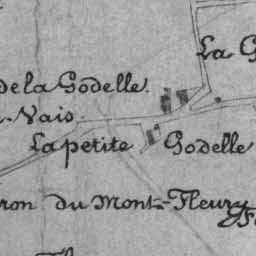 La G
de la Godelle
Vais
La petite Godelle
ron du Mont-Fleury